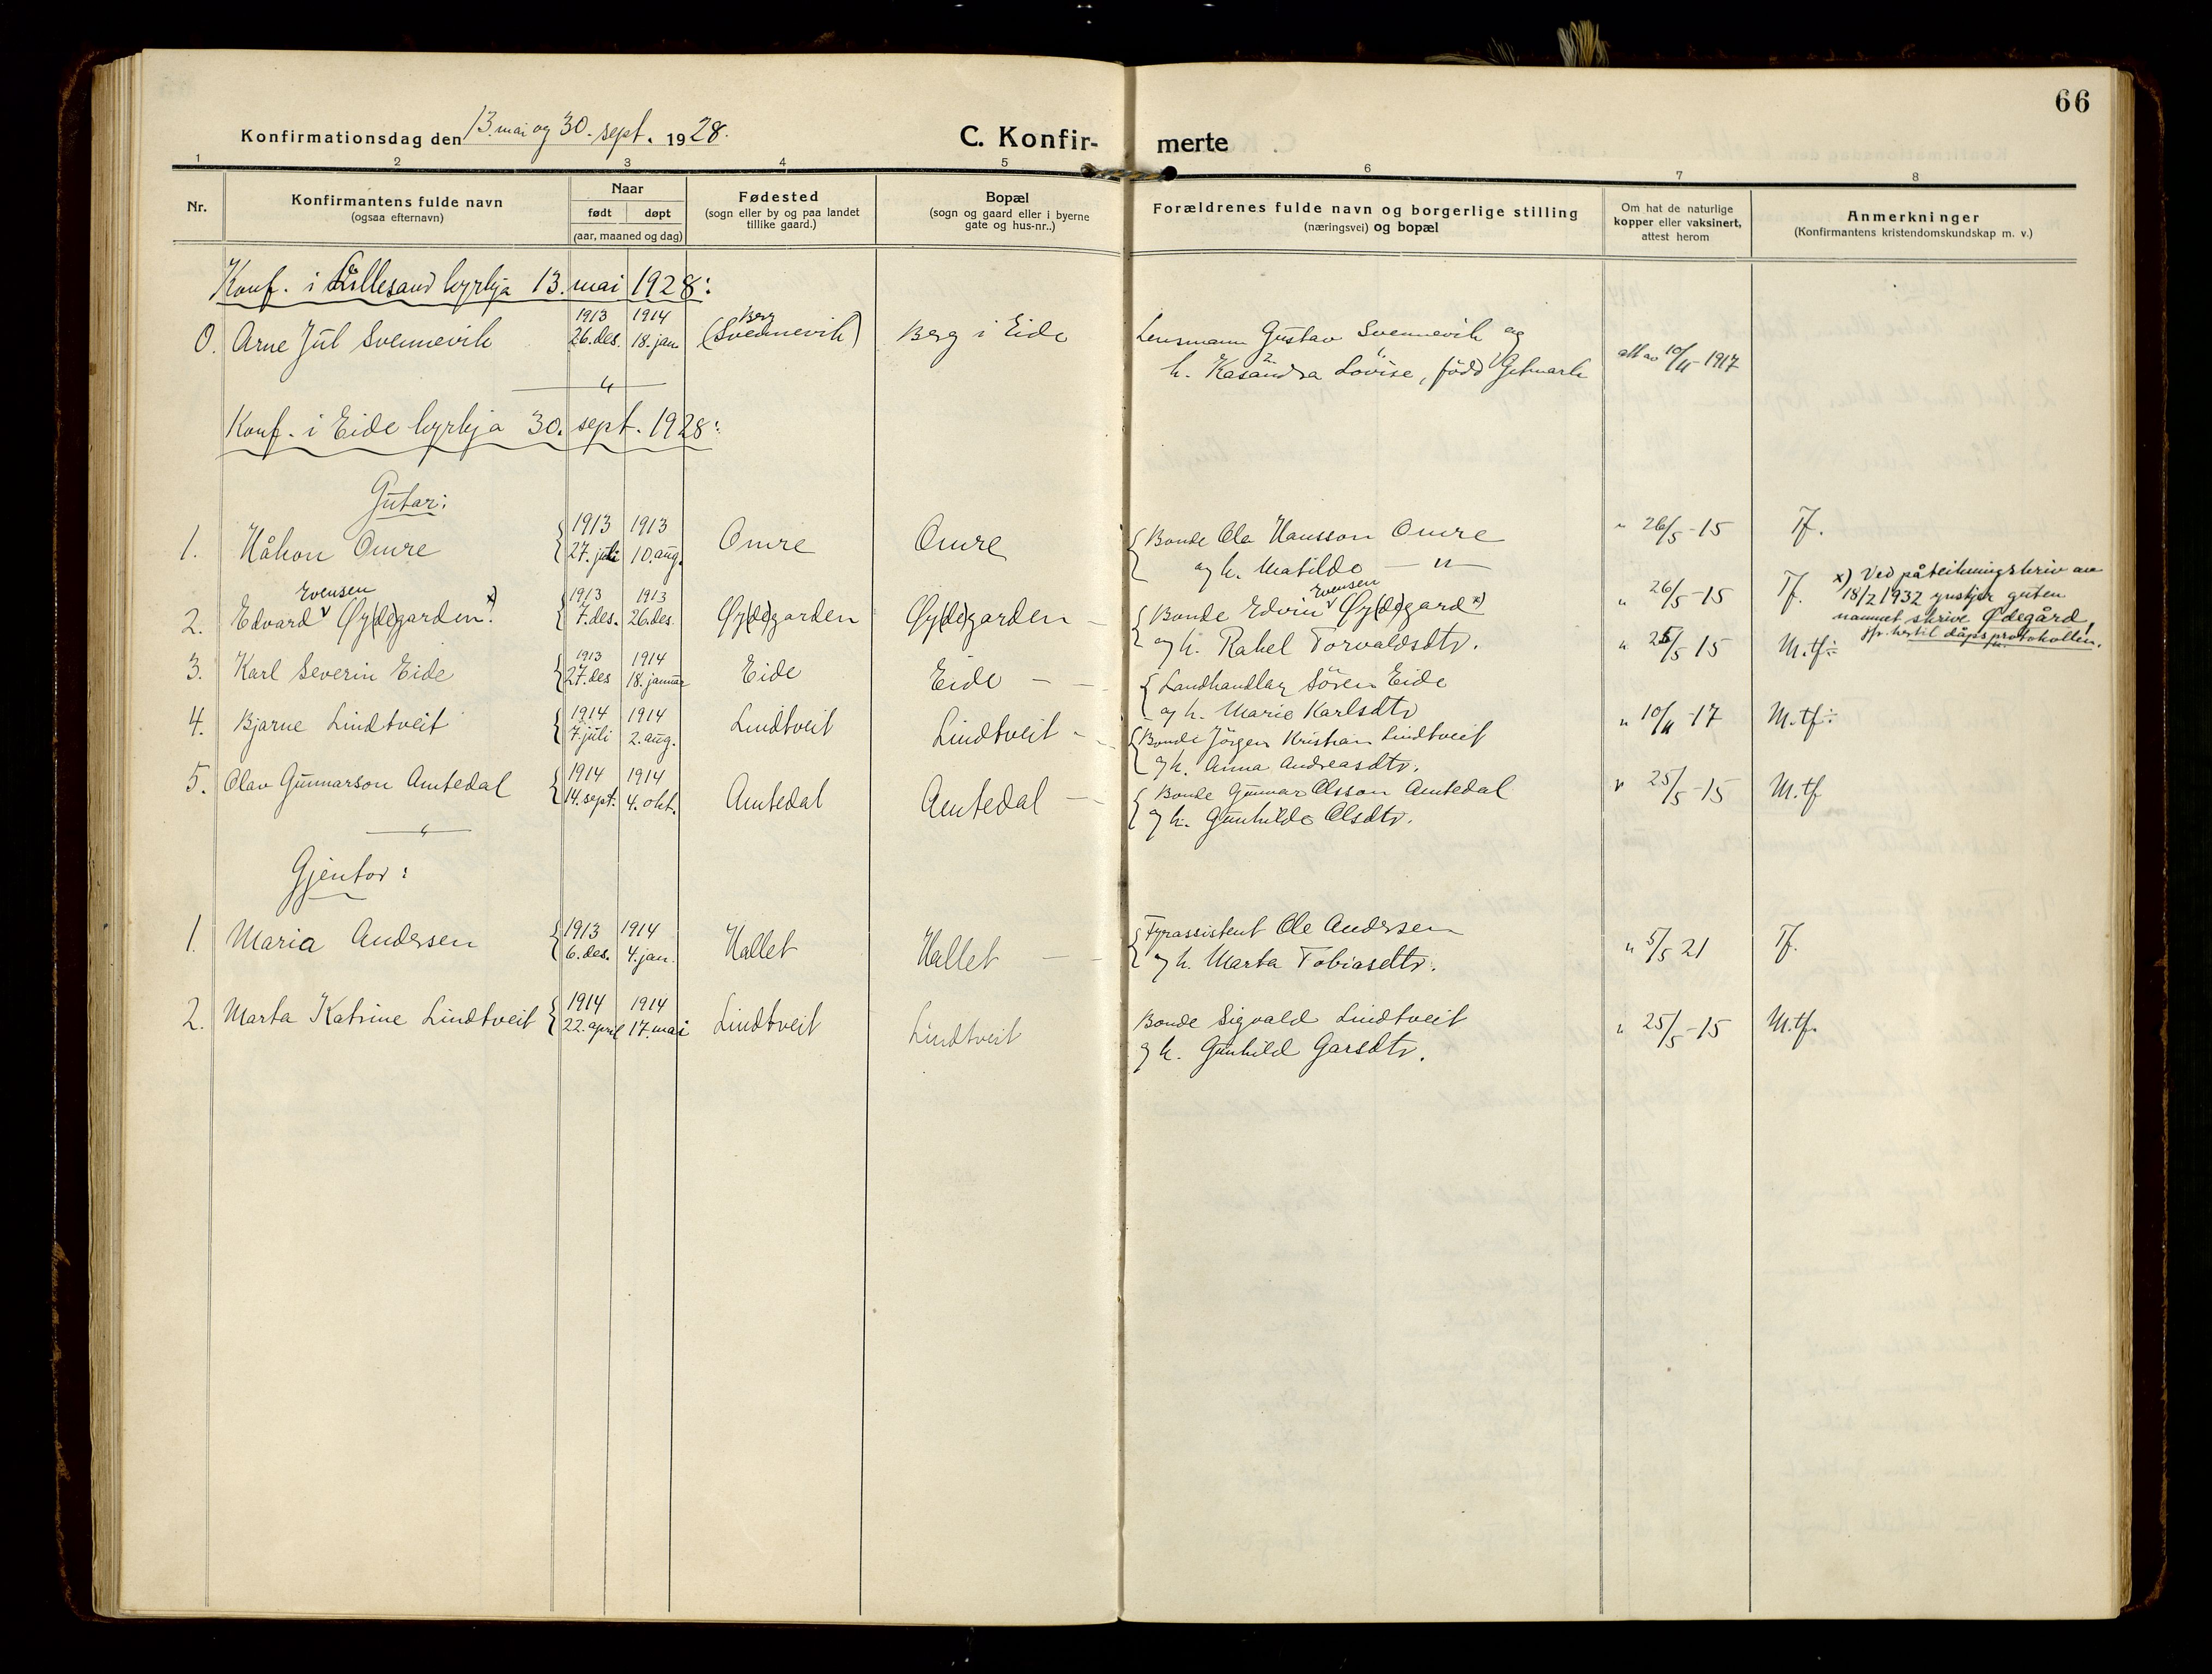 66
Konfirmationsdag den 13. mai og 30. sept. 1928.
C. Konfirmerte
1 2 3 4 5 6 7 8
Nr.
Konfirmantens fulde navn
(ogsaa efternavn)
Naar
født døpt
(aar, maaned og dag)
Fødested
(sogn eller by og paa landet
tillike gaard.)
Bopæl
(sogn og gaard eller i byerne
gate og hus-nr..)
Forældrenes fulde navn og borgerlige stilling
(næringsvei) og bopæl
Om hat de naturlige
kopper eller vaksinert,
attest herom
Anmerkninger
(Konfirmantens kristendomskundskap m. v.)
Konf. i Lillesand kyrkja 13. mai 1928:
0. Arne Jul Svennevik 1913 26. des. 1914 18. jan (Svennevik) Berg Berg i Eide Lensmann Gustav Svennevik og
h. Kasandra Lovise, født Getmark att av 10/11-1917
Konf. i Eide kyrkja 30. sept. 1928:
Gutar:
1. Håkon Omre 1913 27. juli 1913 10. aug. Omre Omre Bonde Ola Hansson Omre
og h. Matilde — " — " 26/5-15 Tf.
2. Edvard Evensen Øy(de)garden x) 1913 7. des. 1913 26. des. Øy(de)garden Øy(de)garden Bonde Edvin Evensen Øy(de)gard x)
og h. Rakel Torvaldsdtr. " 26/5-15 Tf.
x) Ved påteikningskriv av
18/2 1932 ynskjer guten
namnet skrive Ødegård,
jfr. hertil dåpsprotokollen.
3. Karl Severin Eide 1913 27. des 1914 18. januar Eide Eide Landhandlar Sören Eide
og h. Marie Karlsdtr " 25/5 15 M.tf÷
4. Bjarne Lindtveit 1914 7. juli 1914 2. aug. Lindtveit Lindtveit Bonde Jörgen Kristian Lindtveit
og h. Anna Andreasdtr. " 10/11-17 M.tf÷
5. Olav Gunnarson Amtedal 1914 14. sept. 1914 4. okt. Amtedal Amtedal Bonde Gunnar Olsson Amtedal
og h. Gunhilde Olsdtr. " 25/5-15 M.tf
Gjentor:
1. Maria Andersen 1913 6. des. 1914 4. jan. Hallet Hallet Fyrassistent Ole Andersen
og h. Marta Tobiasdtr. " 5/5 21 Tf.
2. Marta Katrine Lindtveit 1914 22. april 1914 17. mai Lindtveit Lindtveit Bonde Sigvald Lindtveit
og h. Gunhild Garsdtr. " 25/5-15 M.tf.